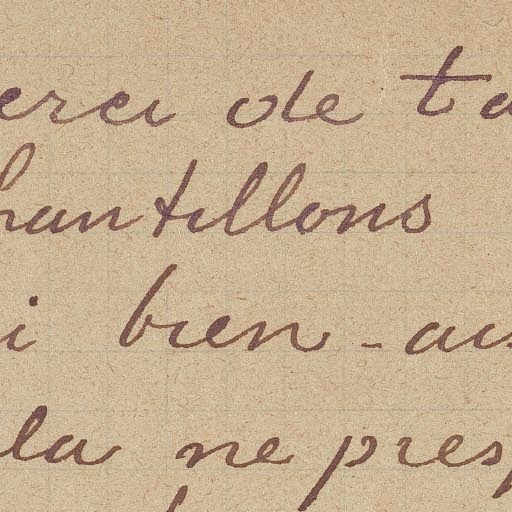 erci de ta
hantillons
i bien-ais
la ne presp